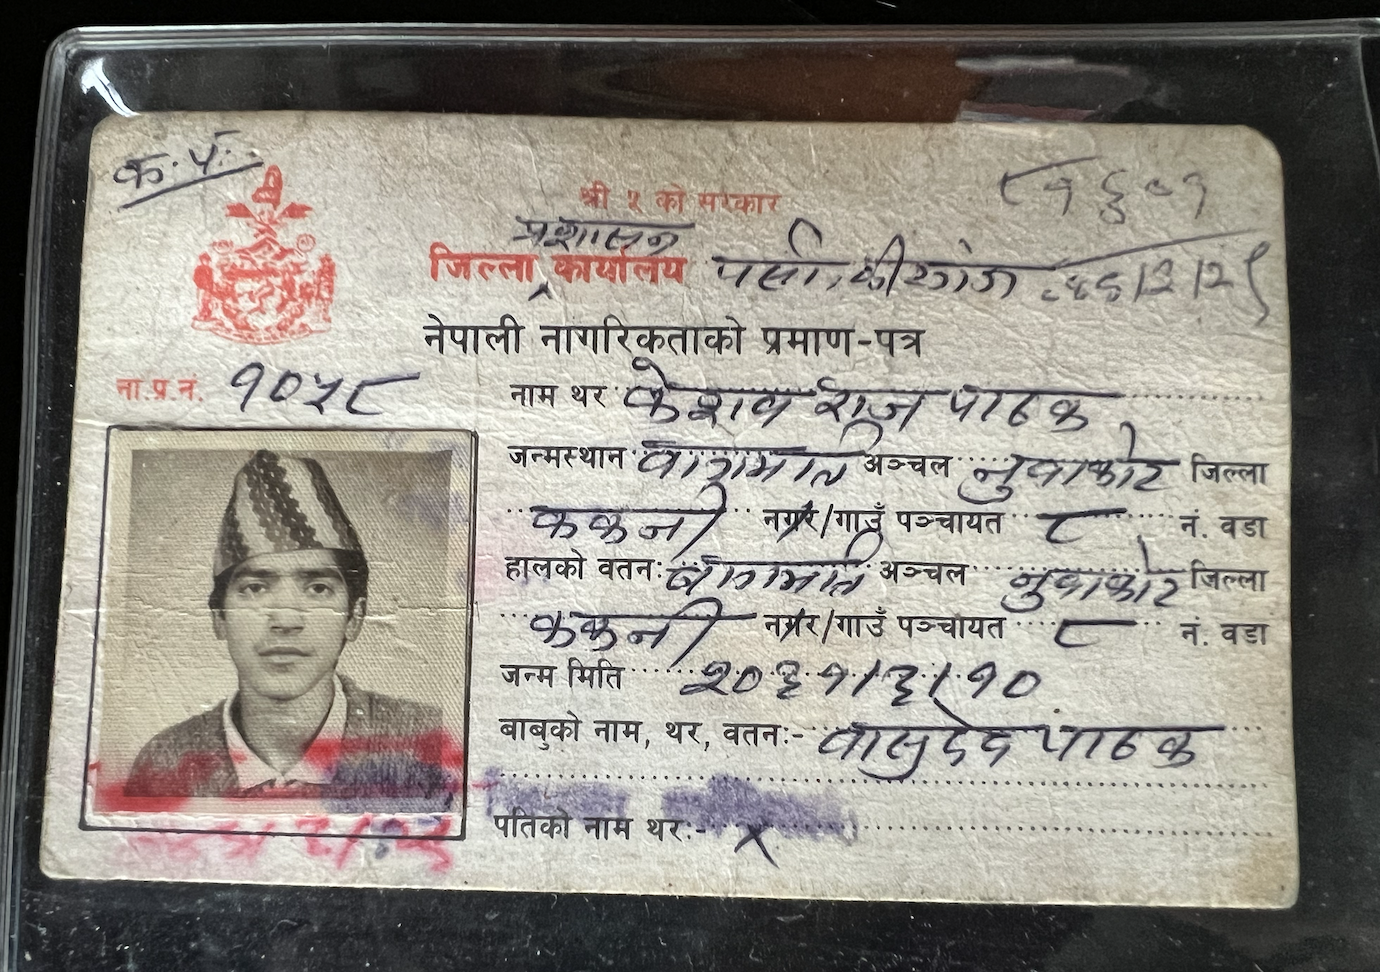 क. पं.
श्री ५ को सरकार
प्रशासन
जिल्ला कार्यालय पर्सा, वीरगंज
नेपाली नागरिकताको प्रमाण-पत्र
ना.प्र.नं. १०५८
नाम थर केशव राज पाठक
जन्मस्थान वागमति अञ्चल नुवाकोट जिल्ला
ककनी नगर/गाउँ पञ्चायत ८ नं. वडा
हालको वतनः वागमति अञ्चल नुवाकोट जिल्ला
ककनी नगर/गाउँ पञ्चायत ८ नं. वडा
जन्म मिति २०३१/३/१०
बाबुको नाम, थर, वतनः- वासुदेव पाठक
पतिको नाम थरः- x